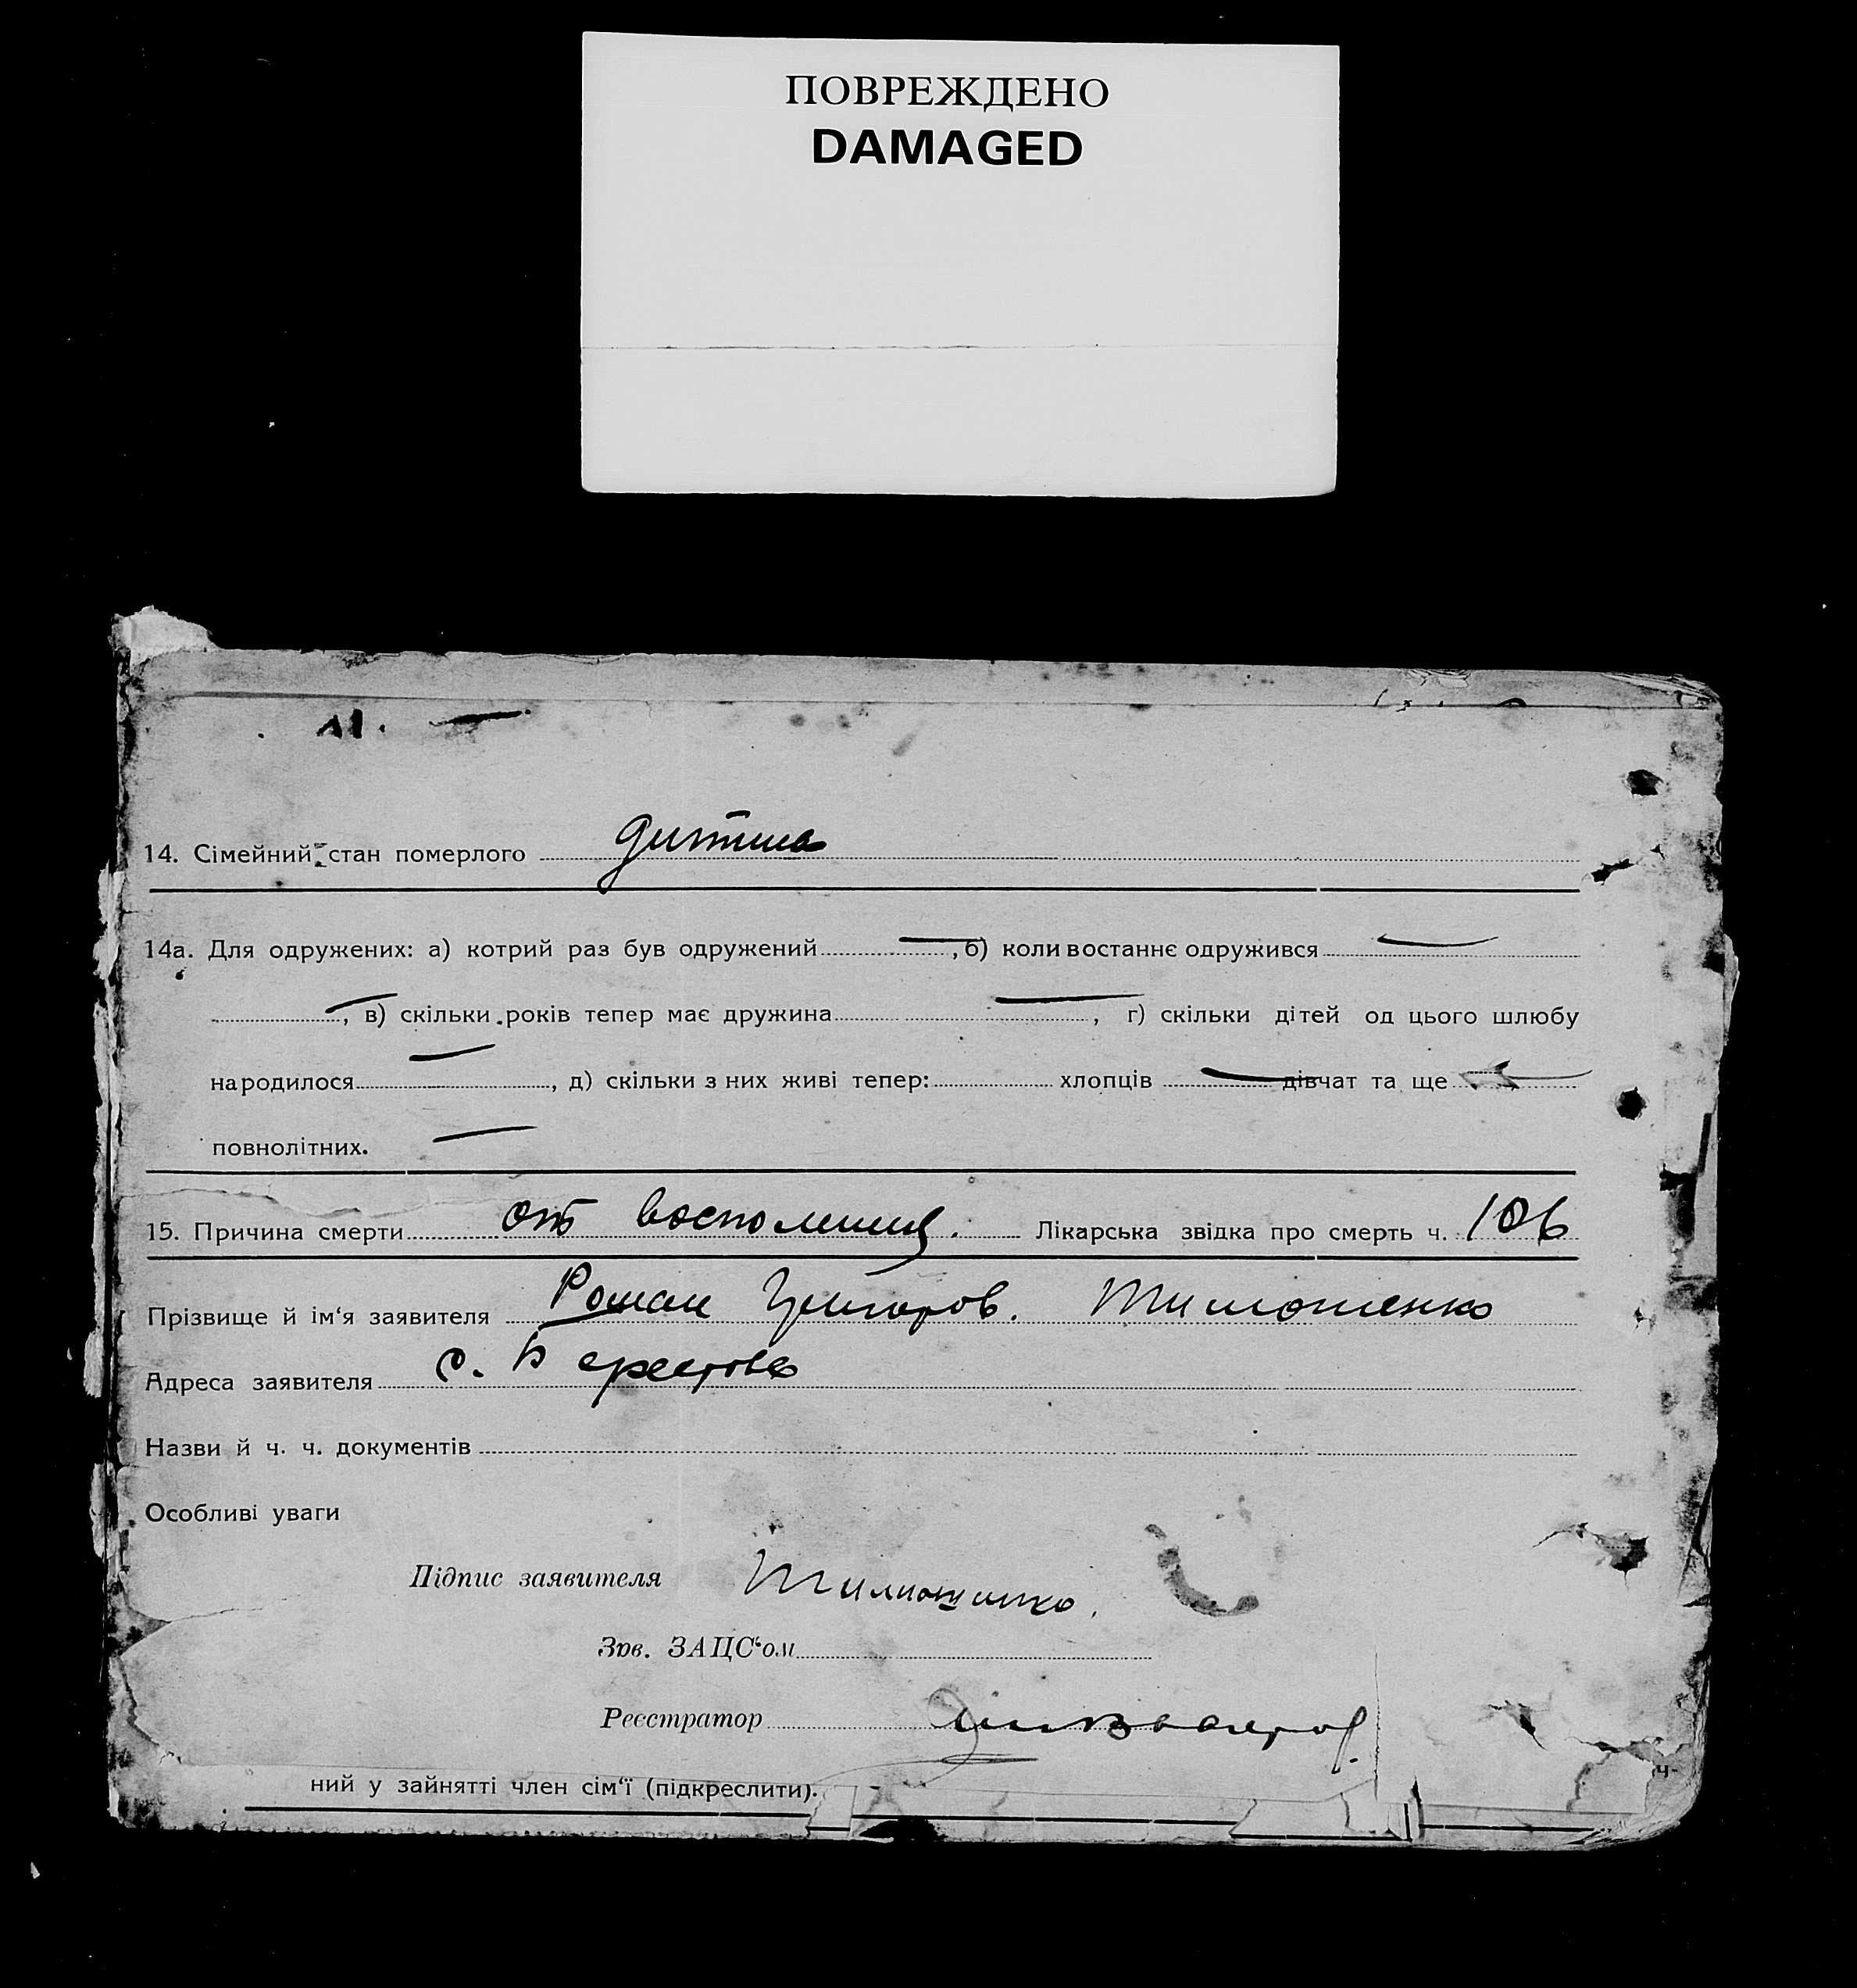 ПОВРЕЖДЕНО
DAMAGED
14. Сімейний стан померлого дитина
14а. Для одружених: а) котрий раз був одружений —, б) коли востаннє одружився —
—, в) скільки років тепер має дружина —, г) скільки дітей од цього шлюбу
народилося —, д) скільки з них живі тепер: хлопців — дівчат та ще —
повнолітних. —
15. Причина смерти от воспо Лікарська звідка про смерть ч. 106
Прізвище й ім‘я заявителя Роман Григоров. Тимошенко
Адреса заявителя с. Берестове
Назви й ч. ч. документів
Особливі уваги
Підпис заявителя Тимошенко.
Зав. ЗАЦС‘ом
Реєстратор
ний у зайнятті член сім‘ї (підкреслити).